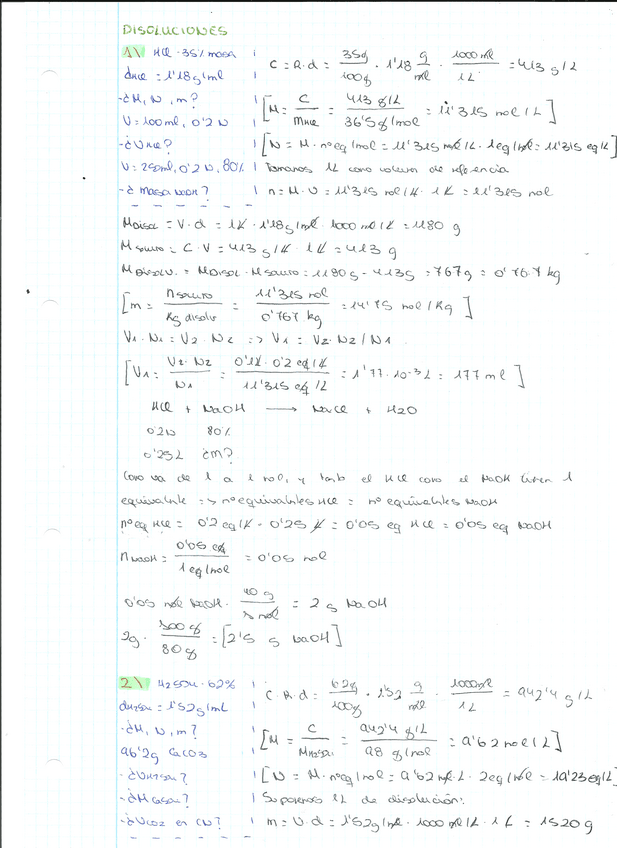 DISOLUCIONES
1\ HCl · 35% masa
dHCl = 1'18 g/ml
-¿M, N, m?
V = 100ml, 0'2 N
-¿VHCl?
V = 250ml, 0'2 N, 80%
-¿masa NaOH?
C = R·d = 35g/100g · 1'18 g/ml · 1000ml/1L = 413 g/L
[M = C/MHCl = 413 g/L / 36'5g/mol = 11'315 mol/L]
[N = M · nºeq/mol = 11'315 mol/L · 1eq/mol = 11'315 eq/L]
Tomamos 1L como volumen de referencia
n = M · V = 11'315 mol/L · 1L = 11'315 mol
Mdisol = V · d = 1L · 1'18 g/ml · 1000 ml/L = 1180 g
Msoluto = C · V = 413 g/L · 1L = 413 g
Mdisolv. = Mdisol - Msoluto = 1180g - 413g = 767g = 0'767 kg
[m = nsoluto/Kg disolv = 11'315 mol / 0'767 kg = 14'75 mol/Kg]
V1 · N1 = V2 · N2 => V1 = V2 · N2 / N1
[V1 = V2 · N2 / N1 = 0'1L · 0'2 eq/L / 11'315 eq/L = 1'77 · 10-3 L = 177 ml]
HCl + NaOH → NaCl + H2O
0'2N 80%
0'25L ¿m?
Como va de 1 a 1 mol, y tanto el HCl como el NaOH tienen 1
equivalente => nºequivalentes HCl = nºequivalentes NaOH
nºeq HCl = 0'2 eq/L · 0'25 L = 0'05 eq HCl = 0'05 eq NaOH
nNaOH = 0'05 eq / 1 eq/mol = 0'05 mol
0'05 mol NaOH · 40 g / 1 mol = 2 g NaOH
2g · 100 g / 80 g = [2'5 g NaOH]
2\ H2SO4 · 62%
dH2SO4 = 1'52g/mL
-¿M, N, m?
96'2g CaCO3
-¿VH2SO4?
-¿MCaSO4?
-¿VCO2 en CN?
C = R·d = 62g/100g · 1'52 g/ml · 1000ml/1L = 942'4 g/L
[M = C/MH2SO4 = 942'4 g/L / 98 g/mol = 9'62 mol/L]
[N = M · nºeq/mol = 9'62 mol/L · 2eq/mol = 19'23 eq/L]
Suponemos 1L de disolución:
m = V · d = 1'52g/ml · 1000 ml/L · 1L = 1520 g